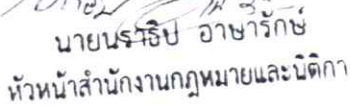 นายนราธิป อาษารักษ์
หัวหน้าสำนักงานกฎหมายและนิติกา